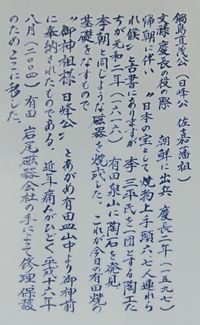 鍋島直茂公(日峰公 佐嘉藩祖)
文禄慶長の役の際 朝鮮に出兵 慶長二年(一五九七)
帰朝に伴い “日本の宝として焼物上手頭六七人連れら
れ候”と古書にありますが 李三平氏を一団とする陶工た
ちが元和二年(一六一六) 有田泉山に陶石を発見
李朝と同じような磁器を焼成した。これが今日有田焼の
基礎をなすもので
“御神祖様 日峰公”とあがめ有田皿山中より御神前
に奉納されたものである。近年痛みがひどく平成十六年
八月(二〇〇四) 有田 岩尾磁器会社の手によって修理保設
のためここに移した。